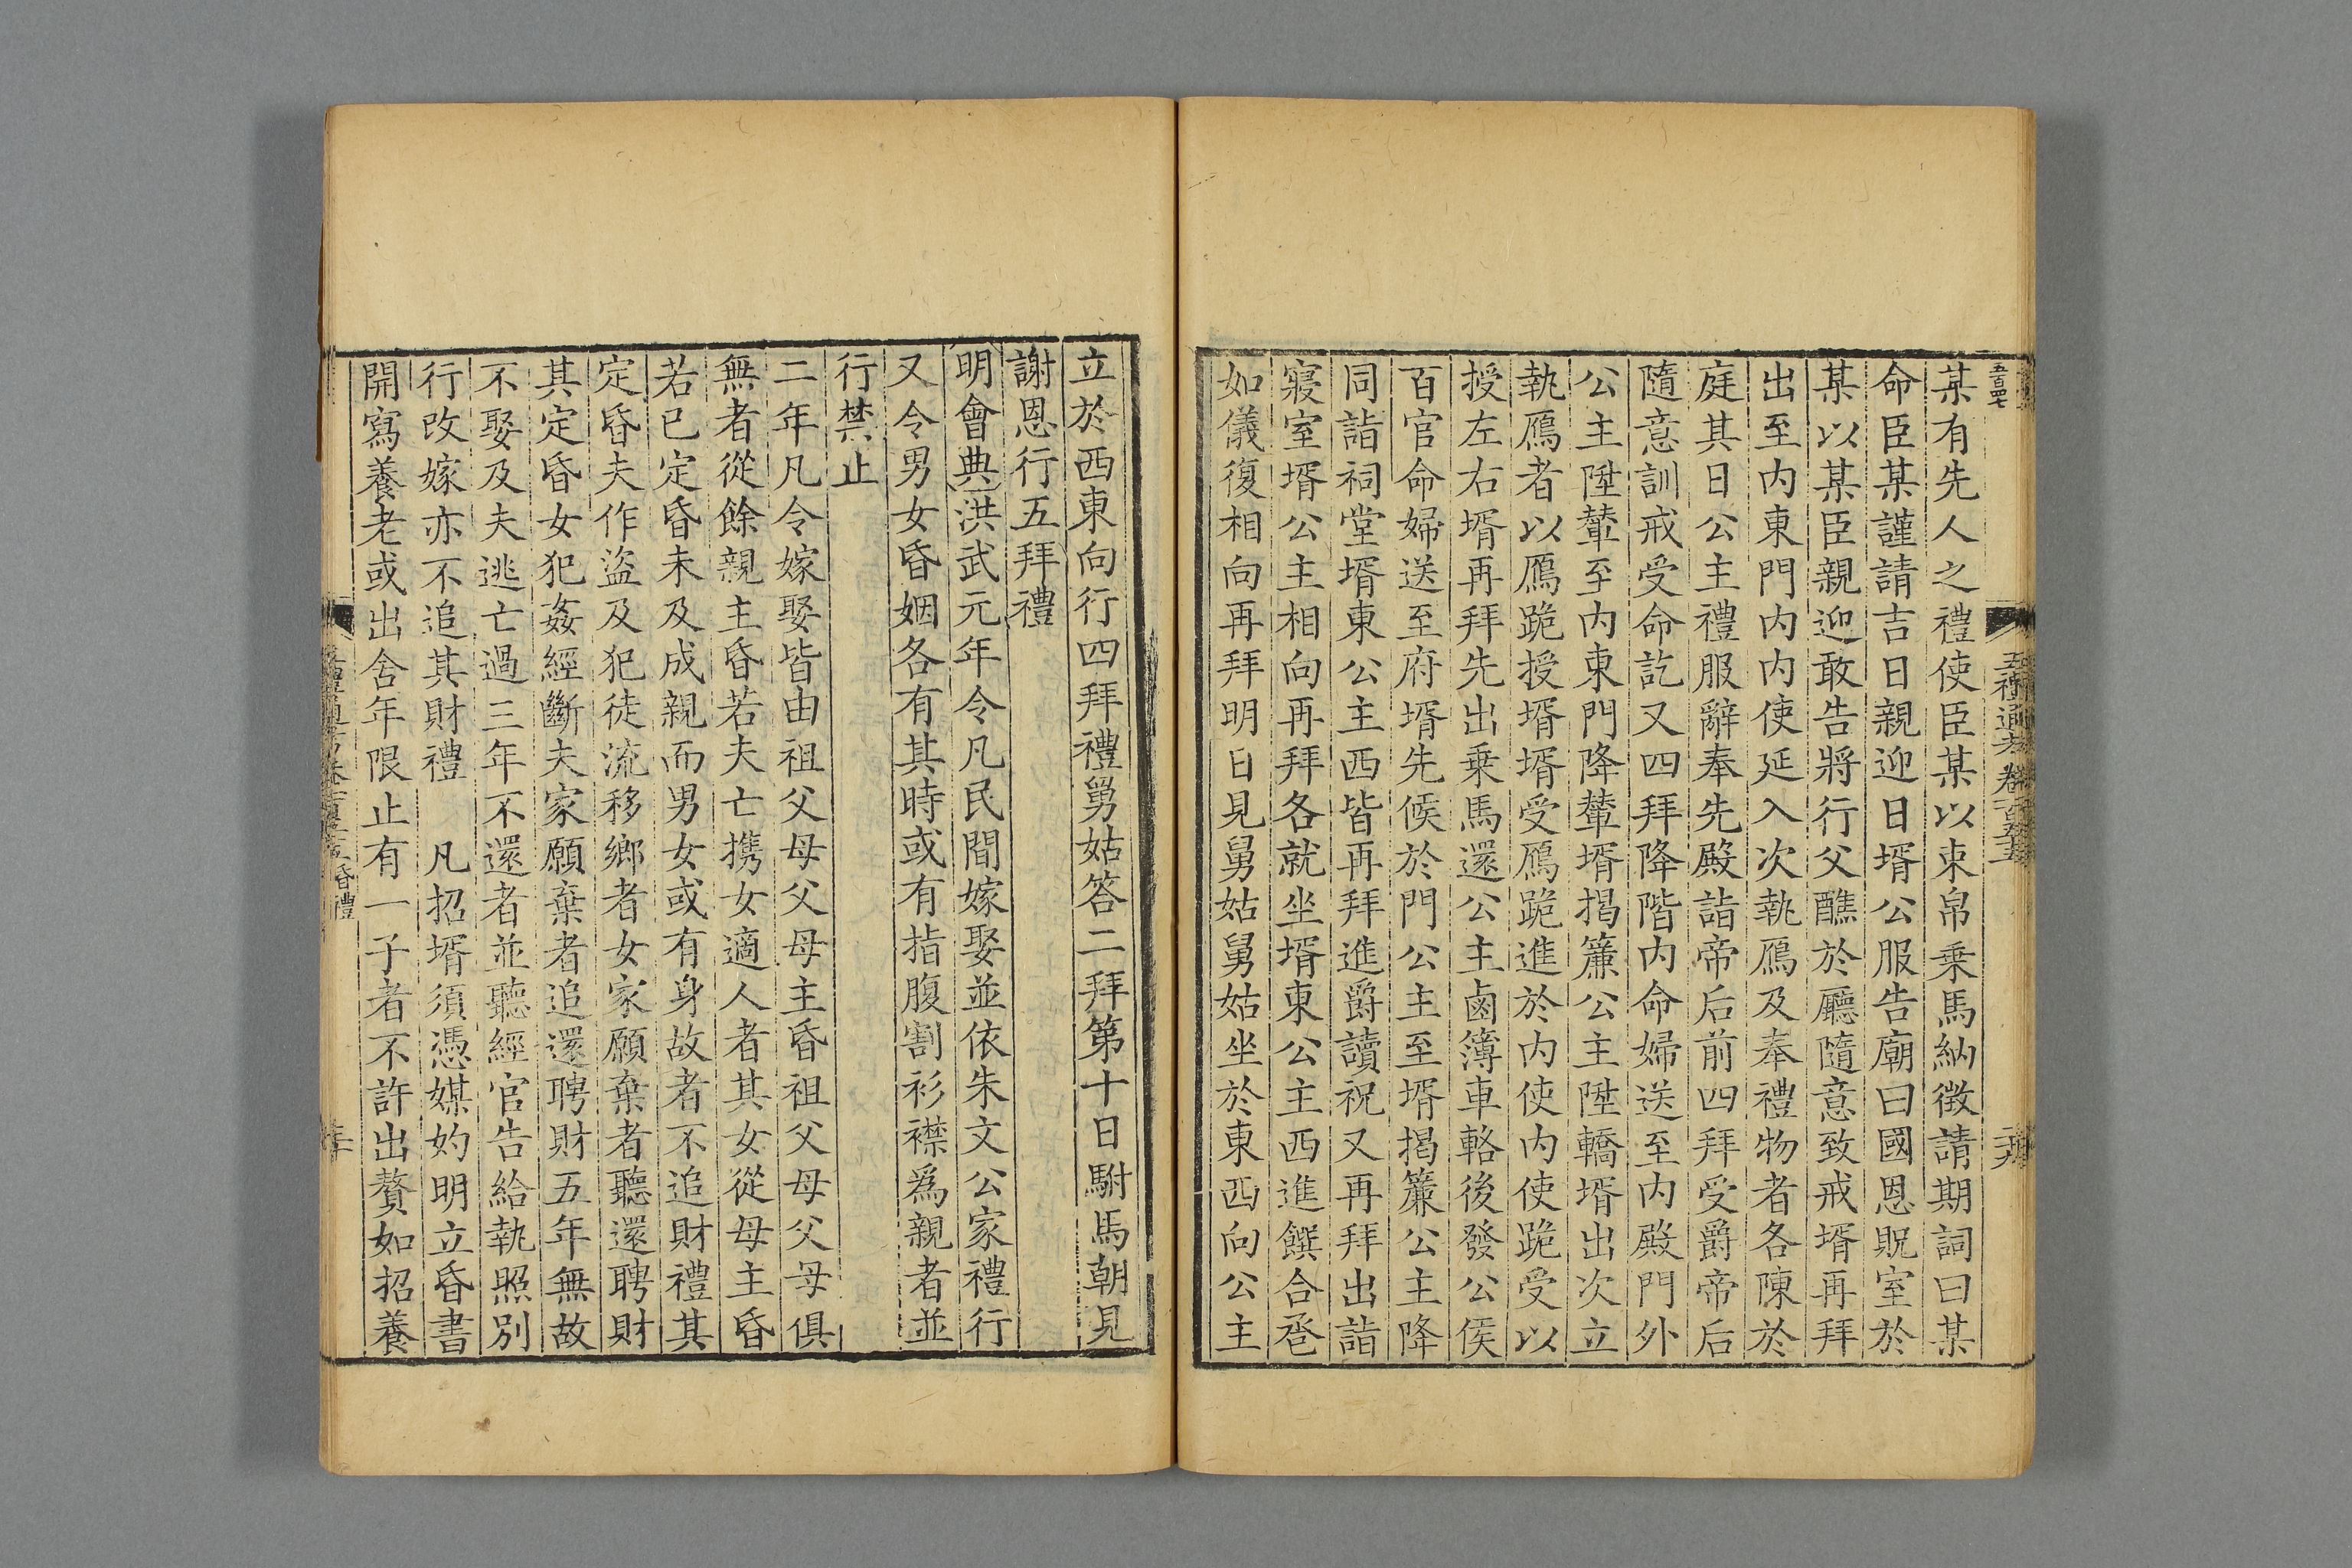 五百四七
五禮通考卷一百五十五
某有先人之禮使臣某以束帛乗馬納徴請期詞曰某
命臣某謹請吉日親迎日壻公服告廟曰國恩貺室於
某以某臣親迎敢告將行父醮於廳隨意致戒壻再拜
出至内東門内内使延入次執鴈及奉禮物者各陳於
庭其日公主禮服辭奉先殿詣帝后前四拜受爵帝后
隨意訓戒受命訖又四拜降階内命婦送至内殿門外
公主陞輦至内東門降輦壻揭簾公主陞轎壻出次立
執鴈者以鴈跪授壻壻受鴈跪進於内使内使跪受以
授左右壻再拜先出乗馬還公主鹵簿車輅後發公侯
百官命婦送至府壻先候於門公主至壻揭簾公主降
同詣祠堂壻東公主西皆再拜進爵讀祝又再拜出詣
寢室壻公主相向再拜各就坐壻東公主西進饌合巹
如儀復相向再拜明日見舅姑舅姑坐於東西向公主
立於西東向行四拜禮舅姑答二拜第十日駙馬朝見
謝恩行五拜禮
明會典洪武元年令凡民間嫁娶並依朱文公家禮行
又令男女昏姻各有其時或有指腹割衫襟爲親者並
行禁止
二年凡令嫁娶皆由祖父母父母主昏祖父母父母俱
無者從餘親主昏若夫亡攜女適人者其女從母主昏
若已定昏未及成親而男女或有身故者不追財禮其
定昏夫作盜及犯徒流移鄉者女家願棄者聽還聘財
其定昏女犯姦經斷夫家願棄者追還聘財五年無故
不娶及夫逃亡過三年不還者並聽經官告給執照別
行改嫁亦不追其財禮　凡招壻須憑媒妁明立昏書
開寫養老或出舍年限止有一子者不許出贅如招養
昏禮